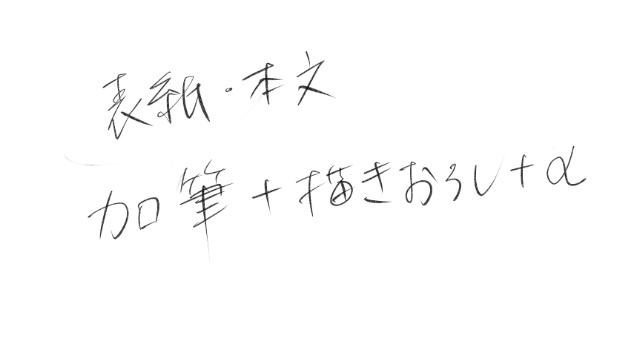 表紙・本文
加筆+描きおろし+α